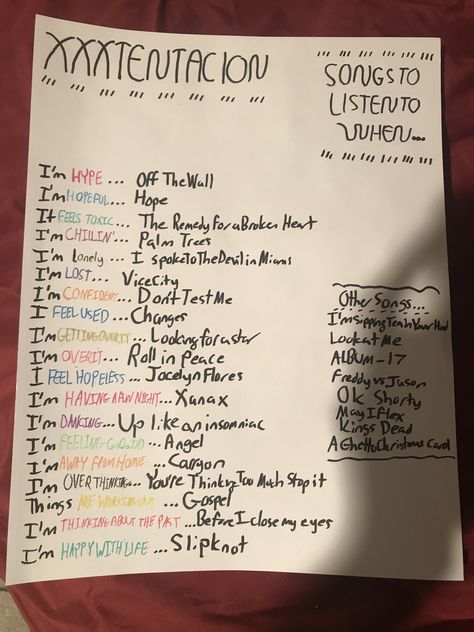 XXXTENTACION
SONGS TO
LISTEN TO
WHEN...
I'm HYPE ... Off The Wall
I'm HOPEFUL... Hope
It FEELS TOXIC... The Remedy For a Broken Heart
I'm CHILLIN'... Palm Trees
I'm Lonely ... I spoke To The Devil in Miami
I'm LOST... Vice City
I'm CONFIDENT... Dont Test Me
I FEEL USED... Changes
I'm GETTING OVER IT... Looking for a star
I'm OVER IT... Roll in Peace
I FEEL HOPELESS... Jocelyn Flores
I'm HAVING A NEW NIGHT... Xanax
I'm DANCING... Up like an insomniac
I'm FEELING GOOOOD ... Angel
I'm AWAY FROM HOME ... Carryon
I'm OVER THINKING... You're Thinking Too Much Stop it
Things ARE WORKING OUT ... Gospel
I'm THINKING ABOUT THE PAST ...Before I close my eyes
I'm HAPPY WITH LIFE ... Slipknot
Other Songs...
I'm Sipping Tea in Your Hood
Look at Me
ALBUM-17
Freddy vs. Jason
Ok Shorty
May I Flex
Kings Dead
A Ghetto Christmas Carol